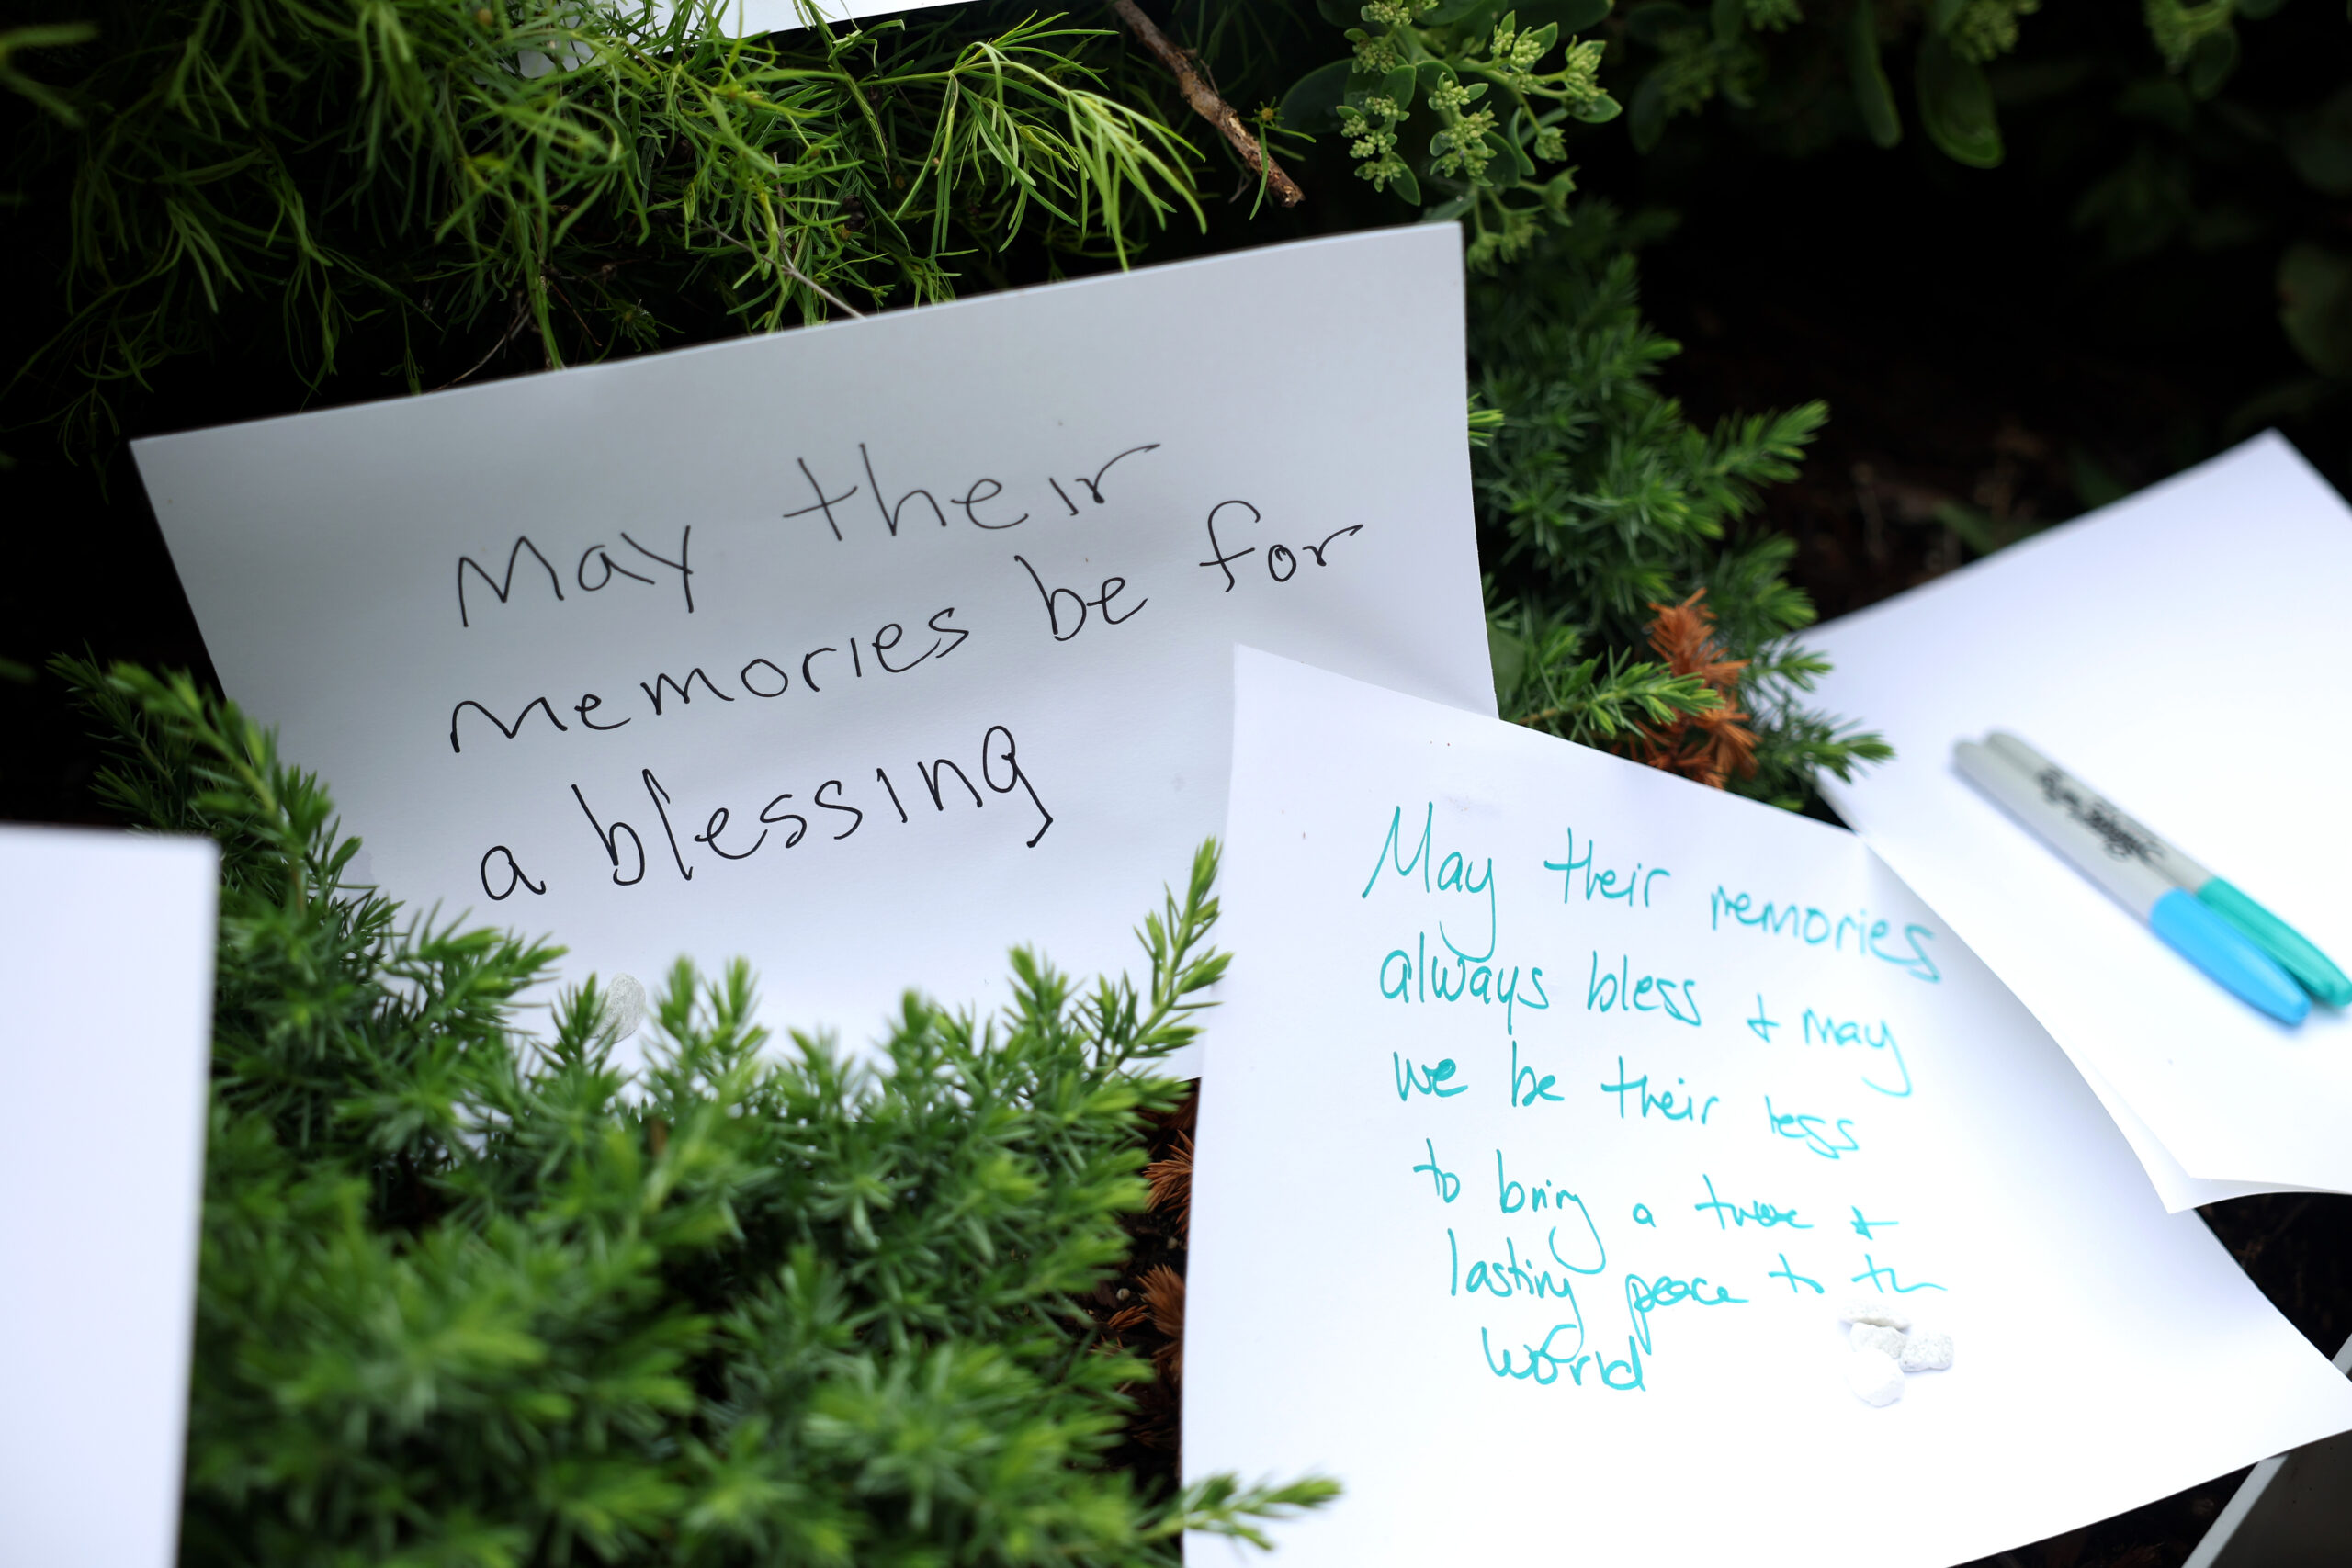 May their
memories be for
a blessing
May their memories
always bless + may
we be their
to bring a true +
lasting peace to the
world